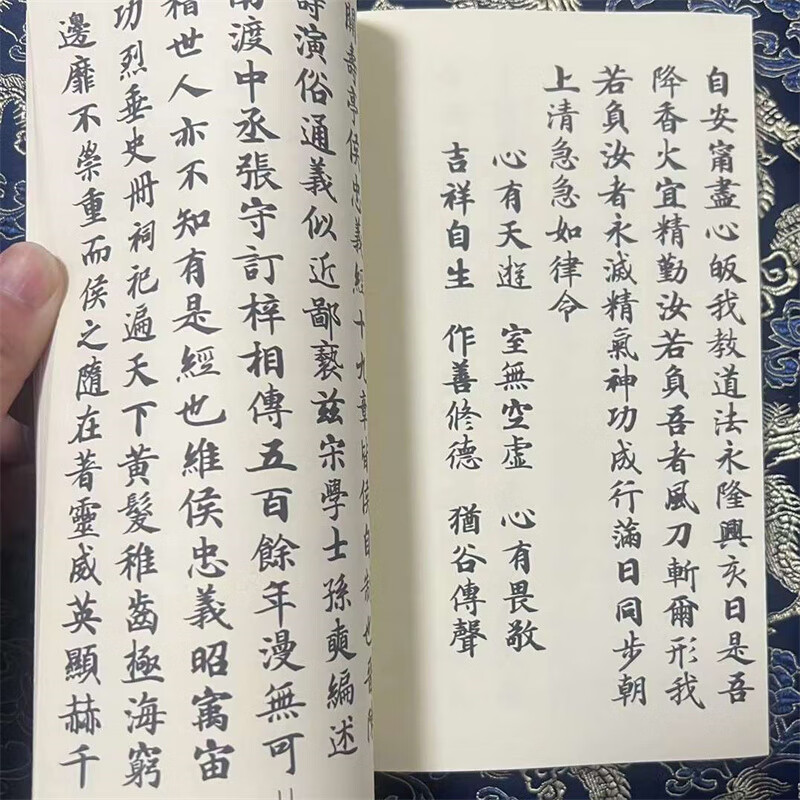 自安甯盡心皈我教道法永隆興亥日是吾
降香火宜精勤汝若負吾者風刀斬爾形我
若負汝者永滅精氣神功成行滿日同步朝
上清急急如律令
心有天遊 室無空虛 心有畏敬
吉祥自生 作善修德 猶谷傳聲
壽亭侯忠義經十九章皆侯自
壽演俗通義似近鄙褻茲宋學士孫奭編述
南渡中丞張守訂梓相傳五百餘年漫無可
稽世人亦不知有是經也維侯忠義昭寓宙
功烈垂史冊祠祀遍天下黃髮稚齒極海窮
邊靡不崇重而侯之隨在著靈威英顯赫千